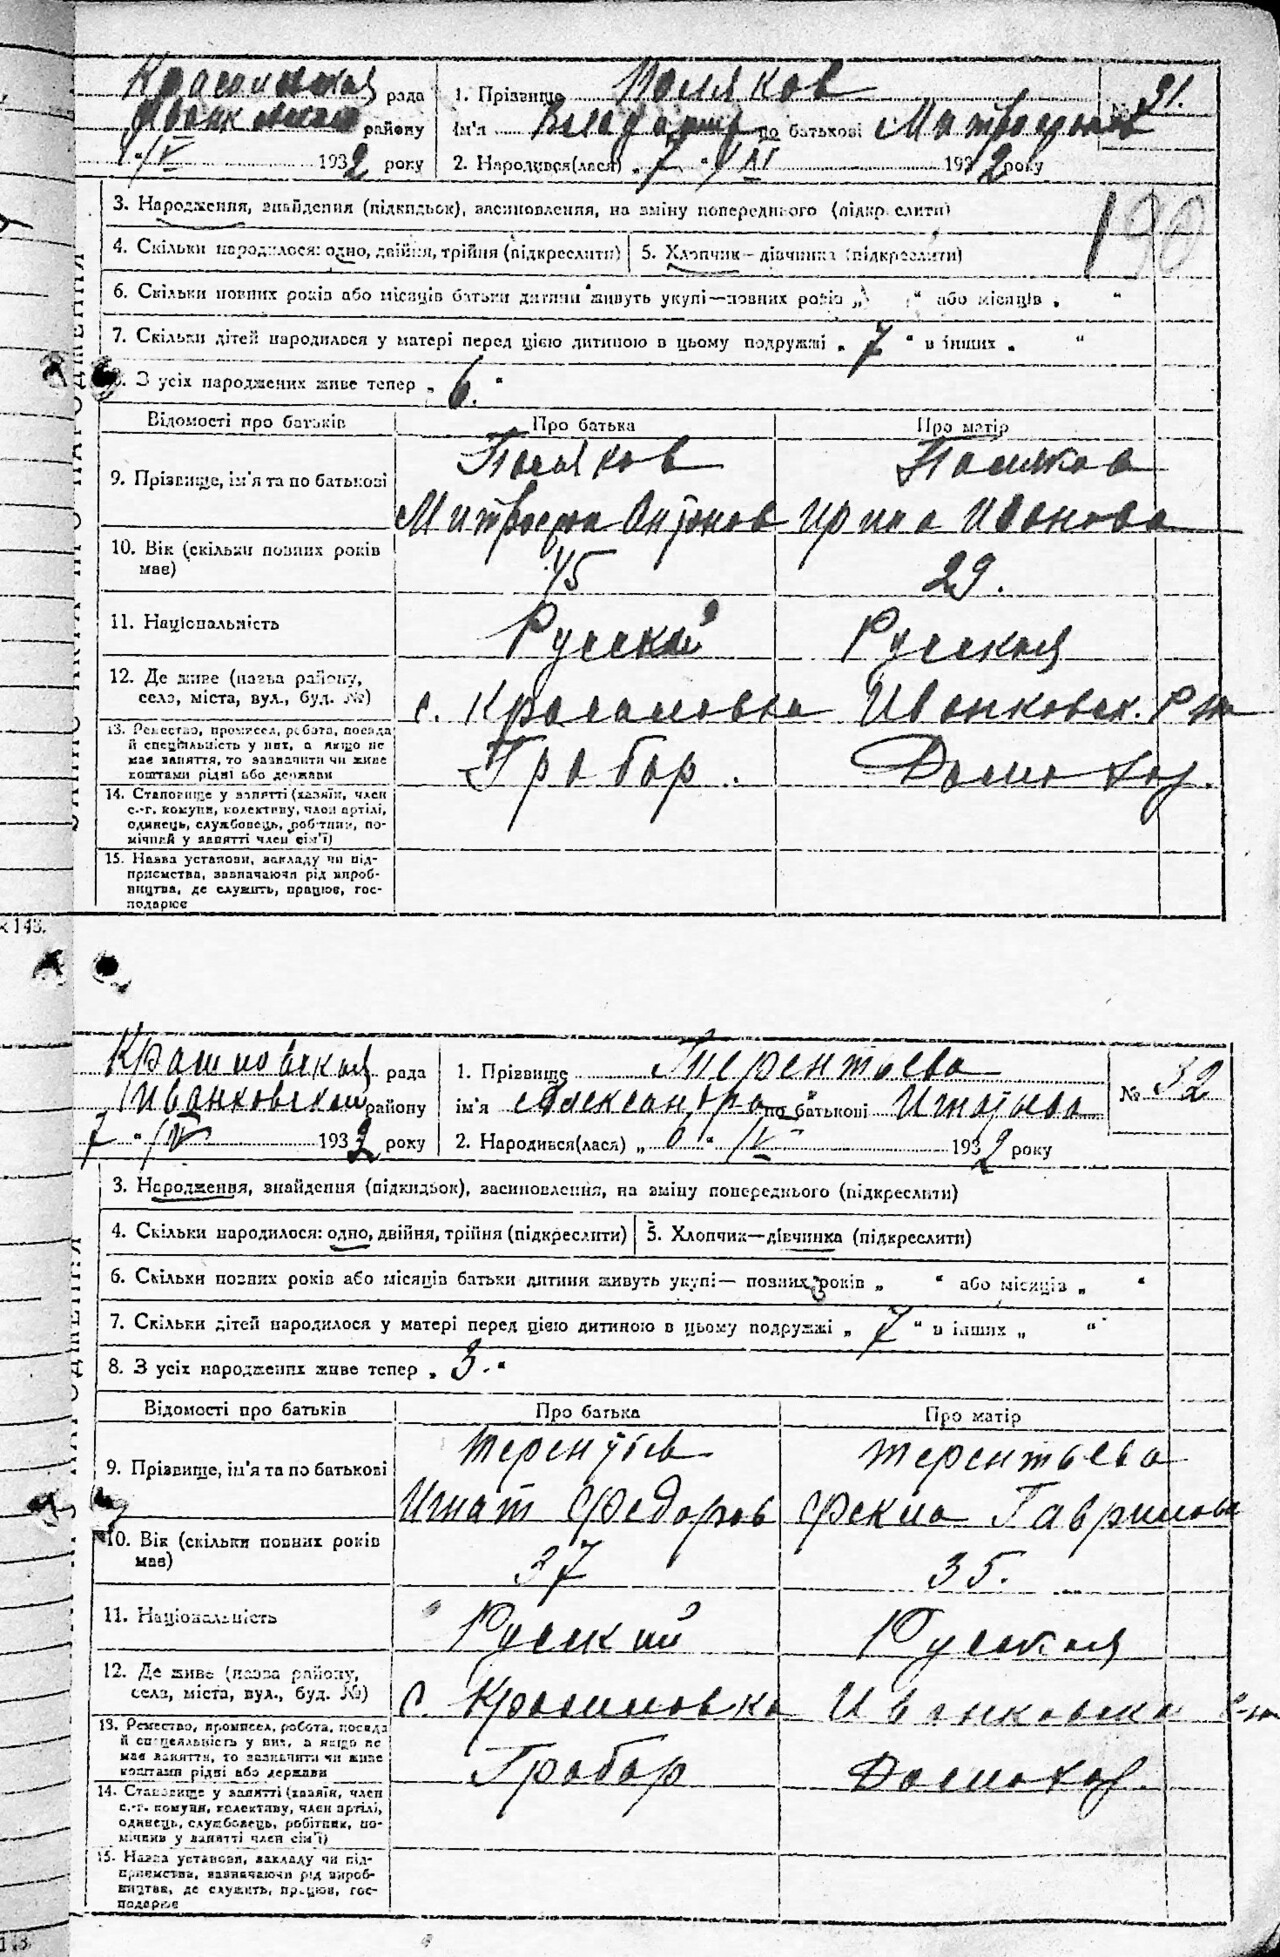 рада 1. Прізвище Поляков № 31.
району ім'я Владимир по батькові Митрофанов
IV 1932 року 2. Народився(лася) „7" IV 1932 року
3. Народження, знайдення (підкидьок), засиновлення, на зміну попереднього (підкреслити)
190
4. Скільки народилося: одно, двійня, трійня (підкреслити) 5. Хлопчик—дівчинка (підкреслити)
6. Скільки повних років або місяців батьки дитини живуть укупі—повних років „ " або місяців „ "
7. Скільки дітей народилося у матері перед цією дитиною в цьому подружжі „7" в інших „ "
З усіх народжених живе тепер „6."
Відомості про батьків Про батька Про матір
Поляков Полякова
9. Прізвище, ім'я та по батькові
Митрофан Антонов Ирина Иванова
10. Вік (скільки повних років має) 45 29.
11. Національність Русский Русская
12. Де живе (назва району, села, міста, вул., буд. №) с. Красиловка Иванковск. р-на
13. Ремество, промисел, робота, посада й спеціяльність у них, а якщо не має заняття, то зазначити чи живе коштами рідні або держави Грабар. Домохоз.
14. Становище у занятті (хазяїн, член с.-г. комуни, колективу, член артілі, одинець, службовець, робітник, помічний у занятті член сім'ї)
15. Назва установи, закладу чи підприємства, зазначаючи рід виробництва, де служить, працює, господарює
143.
рада 1. Прізвище Терентьева № 32
Иванковский району ім'я Александра по батькові Игнатова
7 " IV 1932 року 2. Народився(лася) „6" IV 1932 року
3. Народження, знайдення (підкидьок), засиновлення, на зміну попереднього (підкреслити)
4. Скільки народилося: одно, двійня, трійня (підкреслити) 5. Хлопчик—дівчинка (підкреслити)
6. Скільки повних років або місяців батьки дитини живуть укупі— повних років „ " або місяців „ "
7. Скільки дітей народилося у матері перед цією дитиною в цьому подружжі „7" в інших „ "
8. З усіх народжених живе тепер „3."
Відомості про батьків Про батька Про матір
Терентьев Терентьева
9. Прізвище, ім'я та по батькові
Игнат Федоров Фекла Гаврилова
10. Вік (скільки повних років має) 37 35.
11. Національність Русский Русская
12. Де живе (назва району, села, міста, вул., буд. №) с. Красиловка Иванковски р-на
13. Ремество, промисел, робота, посада й спеціяльність у них, а якщо не має заняття, то зазначити чи живе коштами рідні або держави Грабар Домохоз.
14. Становище у занятті (хазяїн, член с.-г. комуни, колективу, член артілі, одинець, службовець, робітник, помічний у занятті член сім'ї)
15. Назва установи, закладу чи підприємства, зазначаючи рід виробництва, де служить, працює, господарює